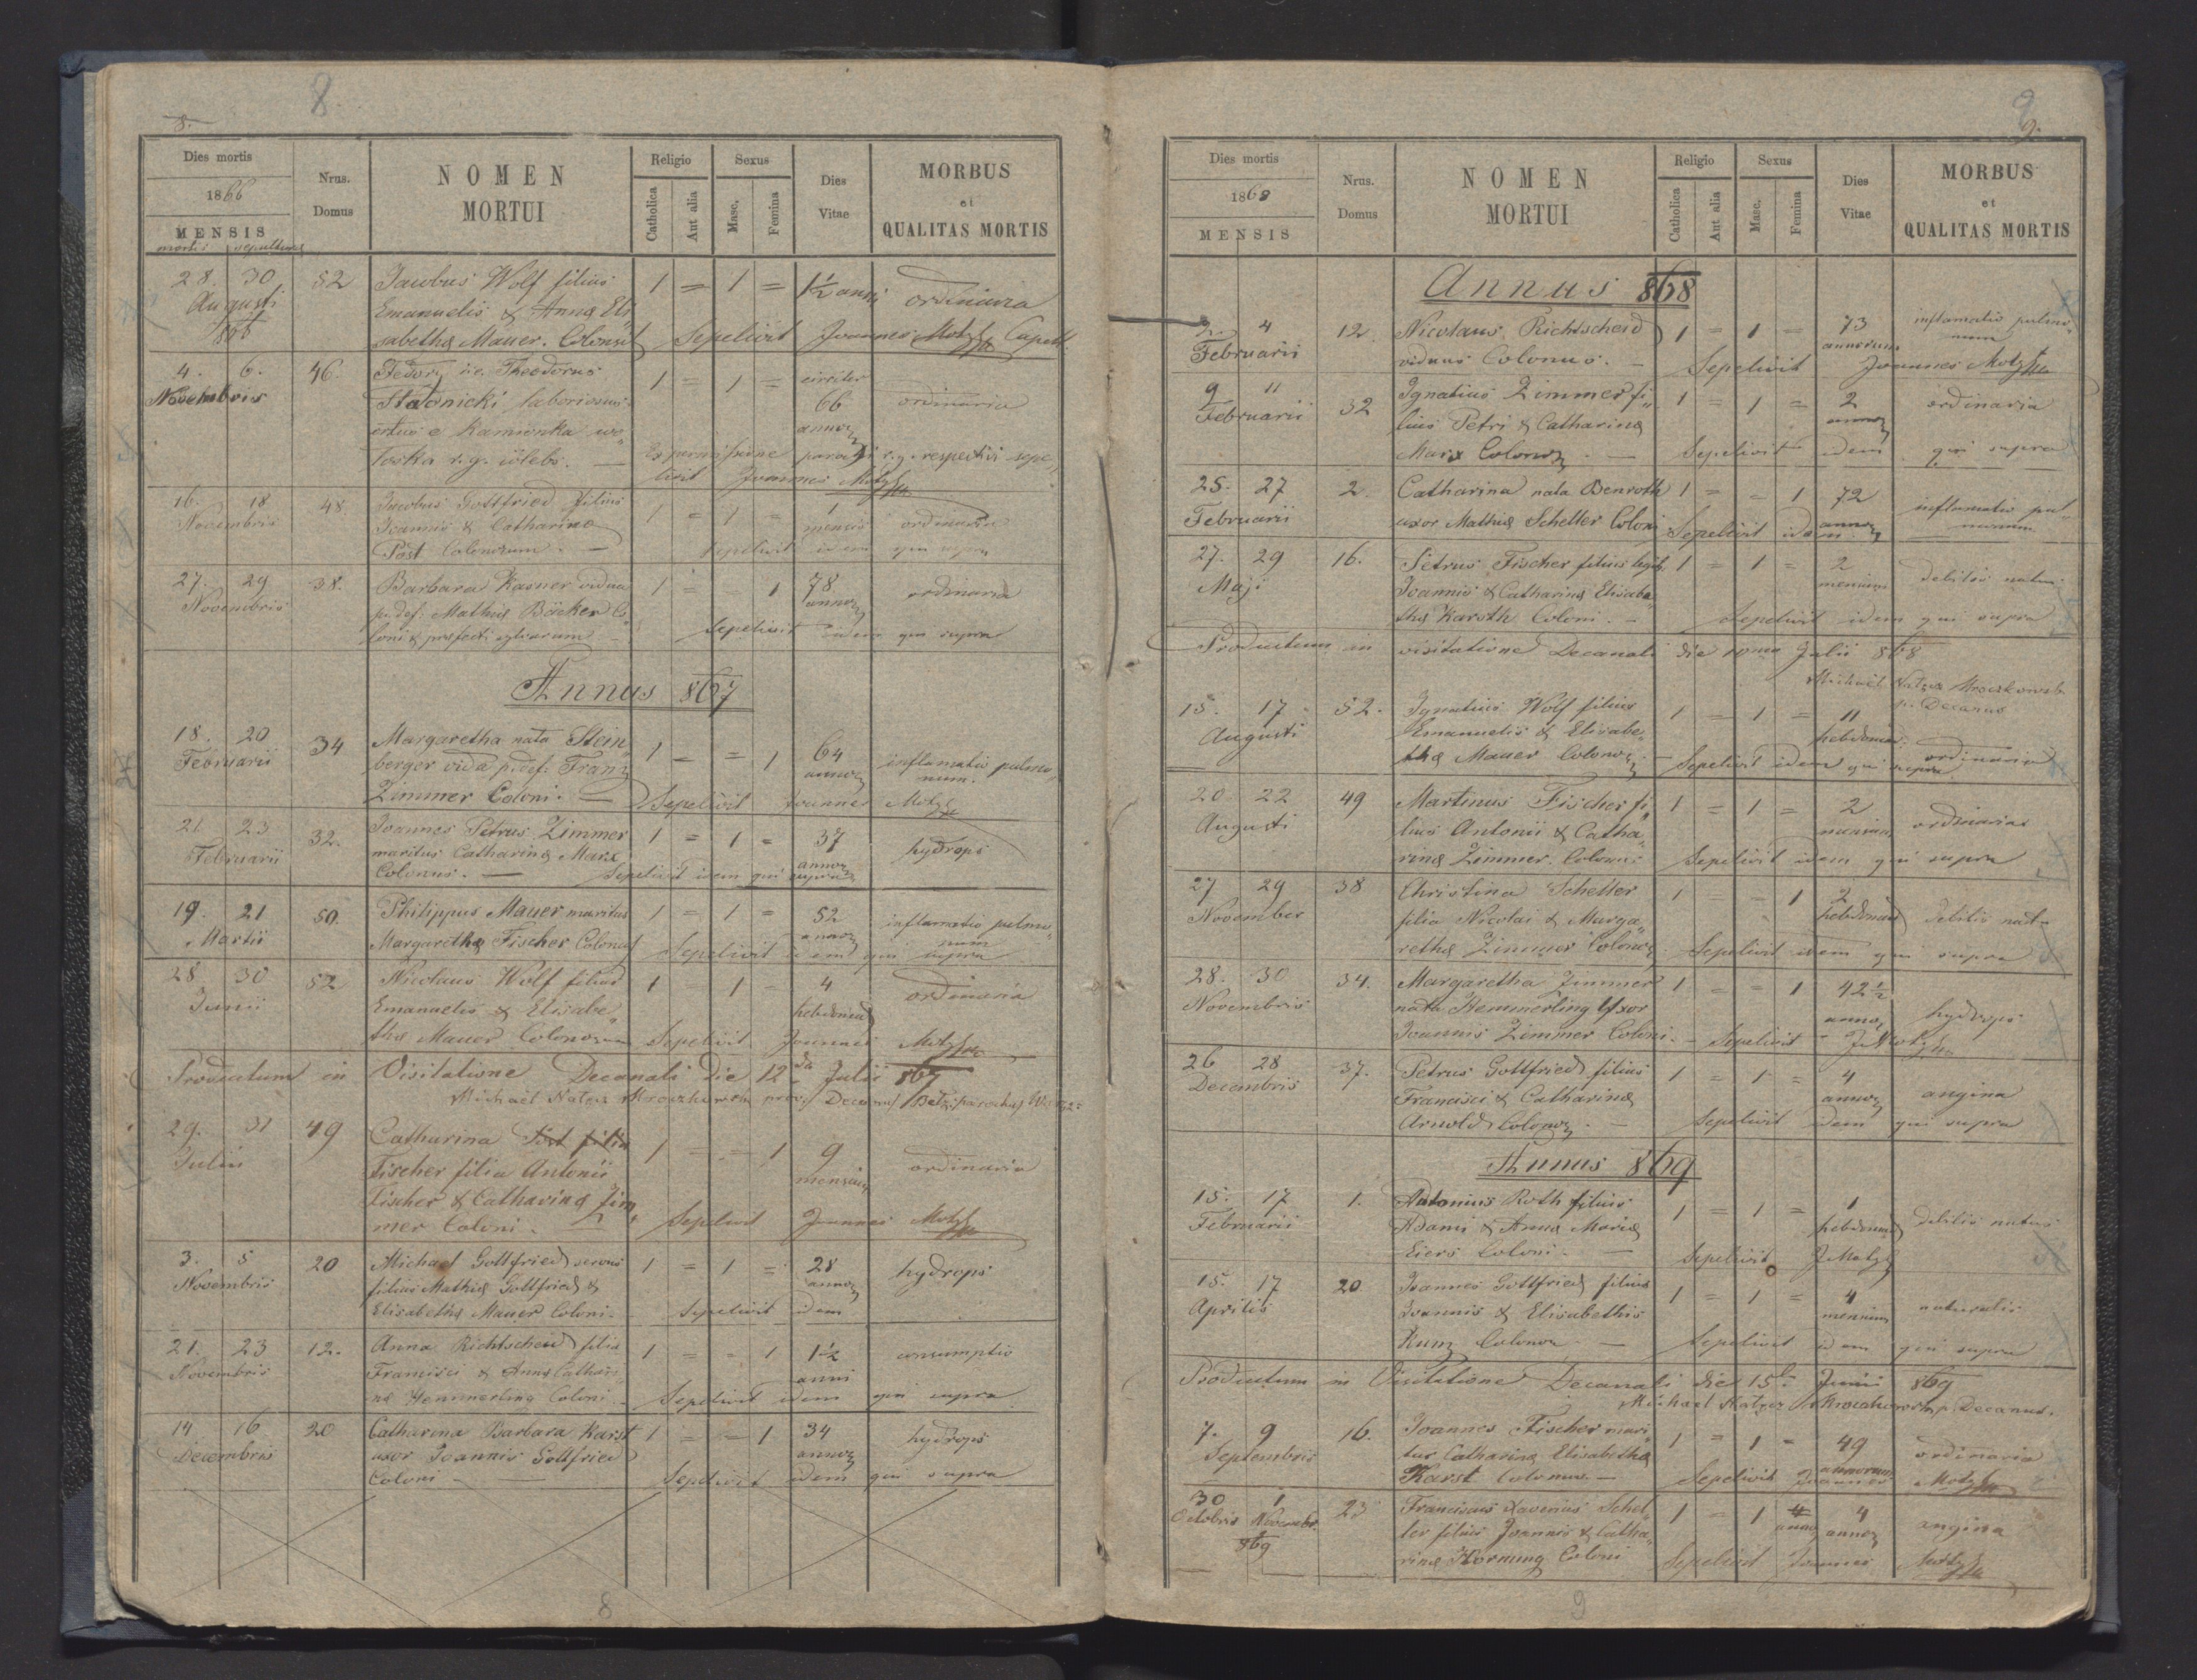 8.
8.
Dies mortis
1866
MENSIS
mortis sepulturae
Nrus.
Domus
NOMEN
MORTUI
Religio
Catholica
Aut alia
Sexus
Masc.
Femina
Dies
Vitae
MORBUS
et
QUALITAS MORTIS
28. 30 52 Jacobus Wolf filius 1 = 1 = 1½ anni ordinaria
Augusti Emanuelis & Anna Eli
866 sabetha Mauer. Colonus Sepelivit Joannes Motyka Capell.
4. 6. 46. Fedory i.e. Theodorus 1 = 1 = circiter
Novembris Stadnicki laboriosus 66 ordinaria
ortus e Kamionka wo„ annor
loska r.g. coelebs. — Ex permissione parochi r.g. respectivi sepe„
livit Joannes Motyka
16. 18 48. Jacobus Gottfried filius 1 = 1 = 1
Novembris Joannis & Catharina mensis ordinaria
Post Colonorum. — Sepelivit idem qui supra
27. 29 38. Barbara Kasner vidua 1 = = 1 78 ordinaria
Novembris p. def. Mathia Bäcker Co„ annor
loni & praefecti sylvarum — Sepelivit idem qui supra
Annus 867
18. 20 34 Margaretha nata Stein„ 1 = = 1 64 inflamatio pulmo„
Februarii berger vid̄a p. def. Franz annor num.
Zimmer Coloni. — Sepelivit Joannes Motyka
21. 23 32. Joannes Petrus Zimmer 1 = 1 = 37 hydrops
Februarii maritus Catharina Marx annor
Colonus. — Sepelivit idem qui supra
19. 21 50. Philippus Mauer maritus 1 = 1 = 52 inflamatio pulmo„
Martii Margaretha Fischer Colonus annor num
Sepelivit idem qui supra
28. 30 52 Nicolaus Wolf filius 1 = 1 = 4 ordinaria
Junii Emanuelis & Elisabe„ hebdomad
tha Mauer Colonorum Sepelivit Joannes Motyka
Productum in Visitatione Decanali die 12da Julii 867
Michael Natger Mroczkowski
29. 31 49 Catharina Post filia 1 = = 1 9 ordinaria
Julii Fischer filia Antonii mensium
Fischer & Catharina Zim„
mer Coloni. — Sepelivit Joannes Motyka
3. 5 20 Michael Gottfried servus 1 = 1 = 28 hydrops
Novembris filius Mathia Gottfried & annor
Elisabetha Mauer Coloni. Sepelivit idem
21. 23 12. Anna Richtscheid filia 1 = = 1 1½ consumptio
Novembris Francisci & Anna Cathari„ anni
na Hemmerling Coloni. Sepelivit idem qui supra
14 16 20 Catharina Barbara Karst 1 = = 1 34 hydrops
Decembris uxor Joannis Gottfried annor
Coloni — Sepelivit idem qui supra
8
9
9.
Dies mortis
1868
MENSIS
Nrus.
Domus
NOMEN
MORTUI
Religio
Catholica
Aut alia
Sexus
Masc.
Femina
Dies
Vitae
MORBUS
et
QUALITAS MORTIS
Annus 868
2. 4 12. Nicolaus Richtscheid 1 = 1 = 73 inflamatio pulmo„
Februarii viduus Colonus. — annorum num
Sepelivit Joannes Motyka
9 11 32 Ignatius Zimmer fi„ 1 = 1 = 2 ordinaria
Februarii lius Petri & Catharina annor
Marx Colonor. — Sepelivit idem qui supra
25. 27 2. Catharina nata Benroth 1 = = 1 72 inflamatio pul„
Februarii uxor Mathia Scheller Coloni annor monum
Sepelivit idem
27. 29 16. Petrus Fischer filius legit. 1 = 1 = 2 debilis natu
Maji Joannis & Catharina Elisabe„ mensium
tha Karsth Coloni. — Sepelivit idem qui supra
Productum in visitatione Decanali die 10ma Julii 868
Michael Natger Mroczkowski
p. Decanus
15. 17 52. Ignatius Wolf filius 1 = 1 = 11
Augusti Emanuelis & Elisabe„ hebdomad. ordinaria
tha Mauer Colonor. — Sepelivit idem qui supra
20 22 49 Martinus Fischer fi„ 1 = 1 = 2 ordinaria
Augusti lius Antonii & Catha„ mensium
rina Zimmer. Colonus Sepelivit idem qui supra
27 29 38 Christina Scheller 1 = = 1 2
November filia Nicolai & Marga„ hebdomad debilis natu
retha Zimmer Colonor. Sepelivit idem qui supra
28. 30 34. Margaretha Zimmer 1 = = 1 42½
Novembris nata Hemmerling Uxor annor hydrops
Joannis Zimmer Coloni. — Sepelivit J Motyka
26 28 37. Petrus Gottfried filius 1 = 1 = 4 angina
Decembris Francisci & Catharina annor
Arnold Colonor. — Sepelivit idem qui supra
Annus 869
15. 17 1. Antonius Roth filius 1 = 1 = 1
Februarii Adami & Anna Maria hebdomad debilis natus
Eiers Coloni. — Sepelivit J Motyka
15. 17 20 Joannes Gottfried filius 1 = 1 = 4 naturalis
Aprilis Joannis & Elisabethis mensium
Kunz Colonor — Sepelivit idem qui supra
Productum in Visitatione Decanali die 15ta Junii 869
Michael Natger Mroczkowski p. Decanus.
7. 9 16. Joannes Fischer mari„ 1 = 1 = 49 ordinaria
Septembris tus Catharina Elisabetha annorum
Karst Colonus. — Sepelivit Joannes Motyka
30 1 23 Franciscus Xaverius Schel„ 1 = 1 4 4 angina
Octobris Novembr. ler filius Joannis & Catha„ annor annor
869 rina Hornung Coloni Sepelivit Joannes Motyka
9